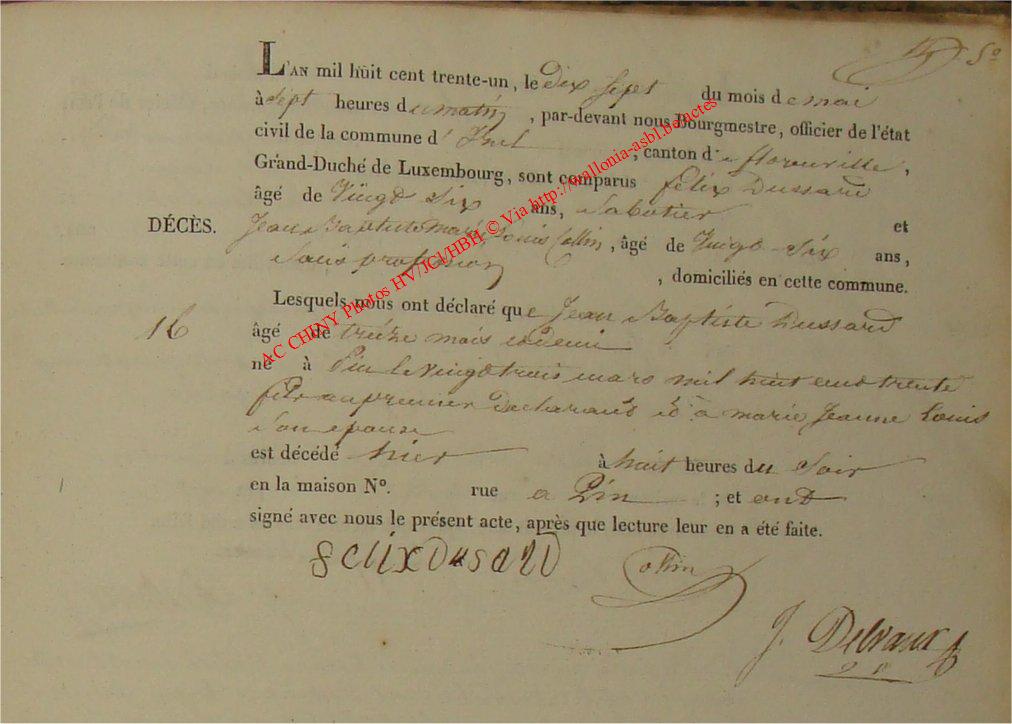 5º
L'AN mil huit cent trente-un, le dix sept du mois de mai
à sept heures du matin, par-devant nous Bourgmestre, officier de l'état
civil de la commune d' Izel, canton de florenville,
Grand-Duché de Luxembourg, sont comparus félix Dussard
âgé de Vingt Six ans, Sabotier et
DÉCÈS.
Jean Baptiste Marie Louis Collin, âgé de Vingt Six ans,
Sans profession, domiciliés en cette commune.
Lesquels nous ont déclaré que Jean Baptiste Dussard
16
âgé de treize mois et demi
né à Pin le Vingt trois mars mil huit cent trente
fils au premier Déclarant et à marie Jeanne Louis
Son épouse
est décédé hier à huit heures du Soir
en la maison Nº. rue a Pin ; et ont
signé avec nous le présent acte, après que lecture leur en a été faite.
felix Dusard
Collin
J. Delvaux
AC CHINY Photos HV/JCI/HBH © Via http://wallonia-asbl.be/actes